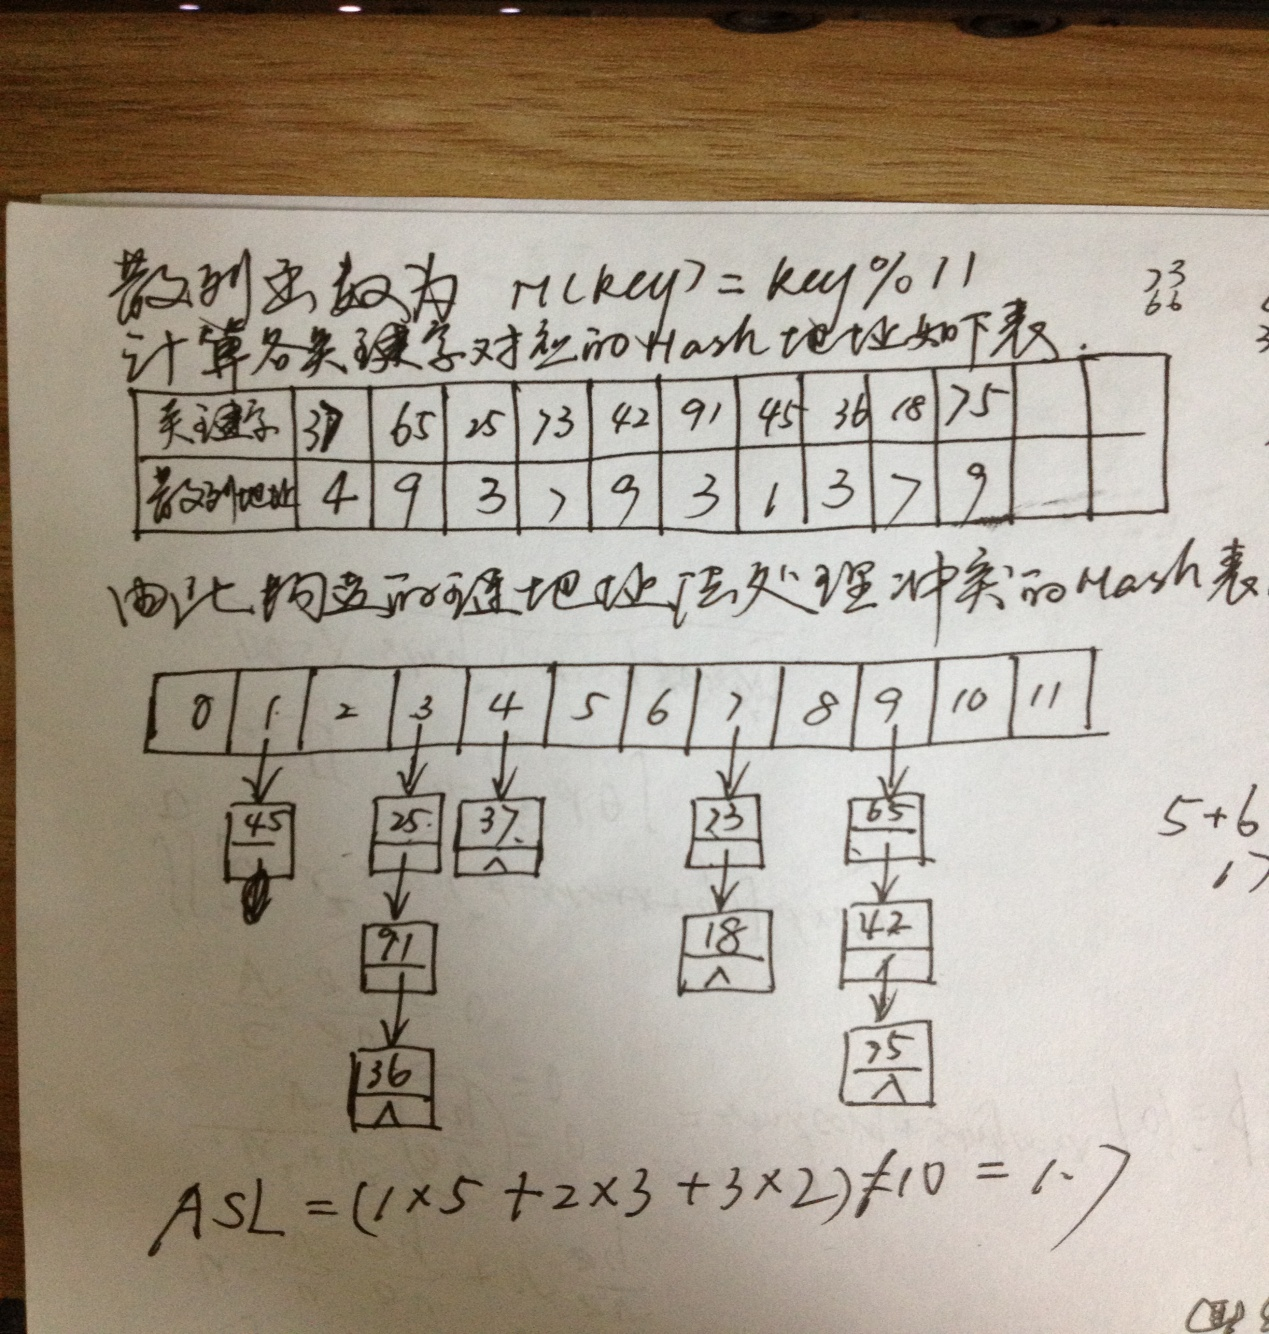 散列函数为 H(key) = key % 11
计算各关键字对应的Hash地址如下表.
关键字 37 65 25 73 42 91 45 36 18 75
散列地址 4 9 3 7 9 3 1 3 7 9
由此构造的链地址法处理冲突的Hash表
0 1 2 3 4 5 6 7 8 9 10 11
45 25 37 ∧ 73 65
91 18 ∧ 42
36 ∧ 75 ∧
ASL = (1×5 + 2×3 + 3×2) ÷ 10 = 1.7
73
66
5+6
17